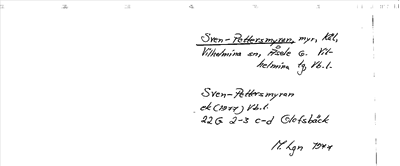 Sven-Pettersmyran, myr, Käl,
Vilhelmina sn, Åsele o. Vil-
helmina tg, Vb.l.
Sven-Pettersmyran
ek (1977) Vb.l.
22G 2-3 c-d
M. Lgn 1977